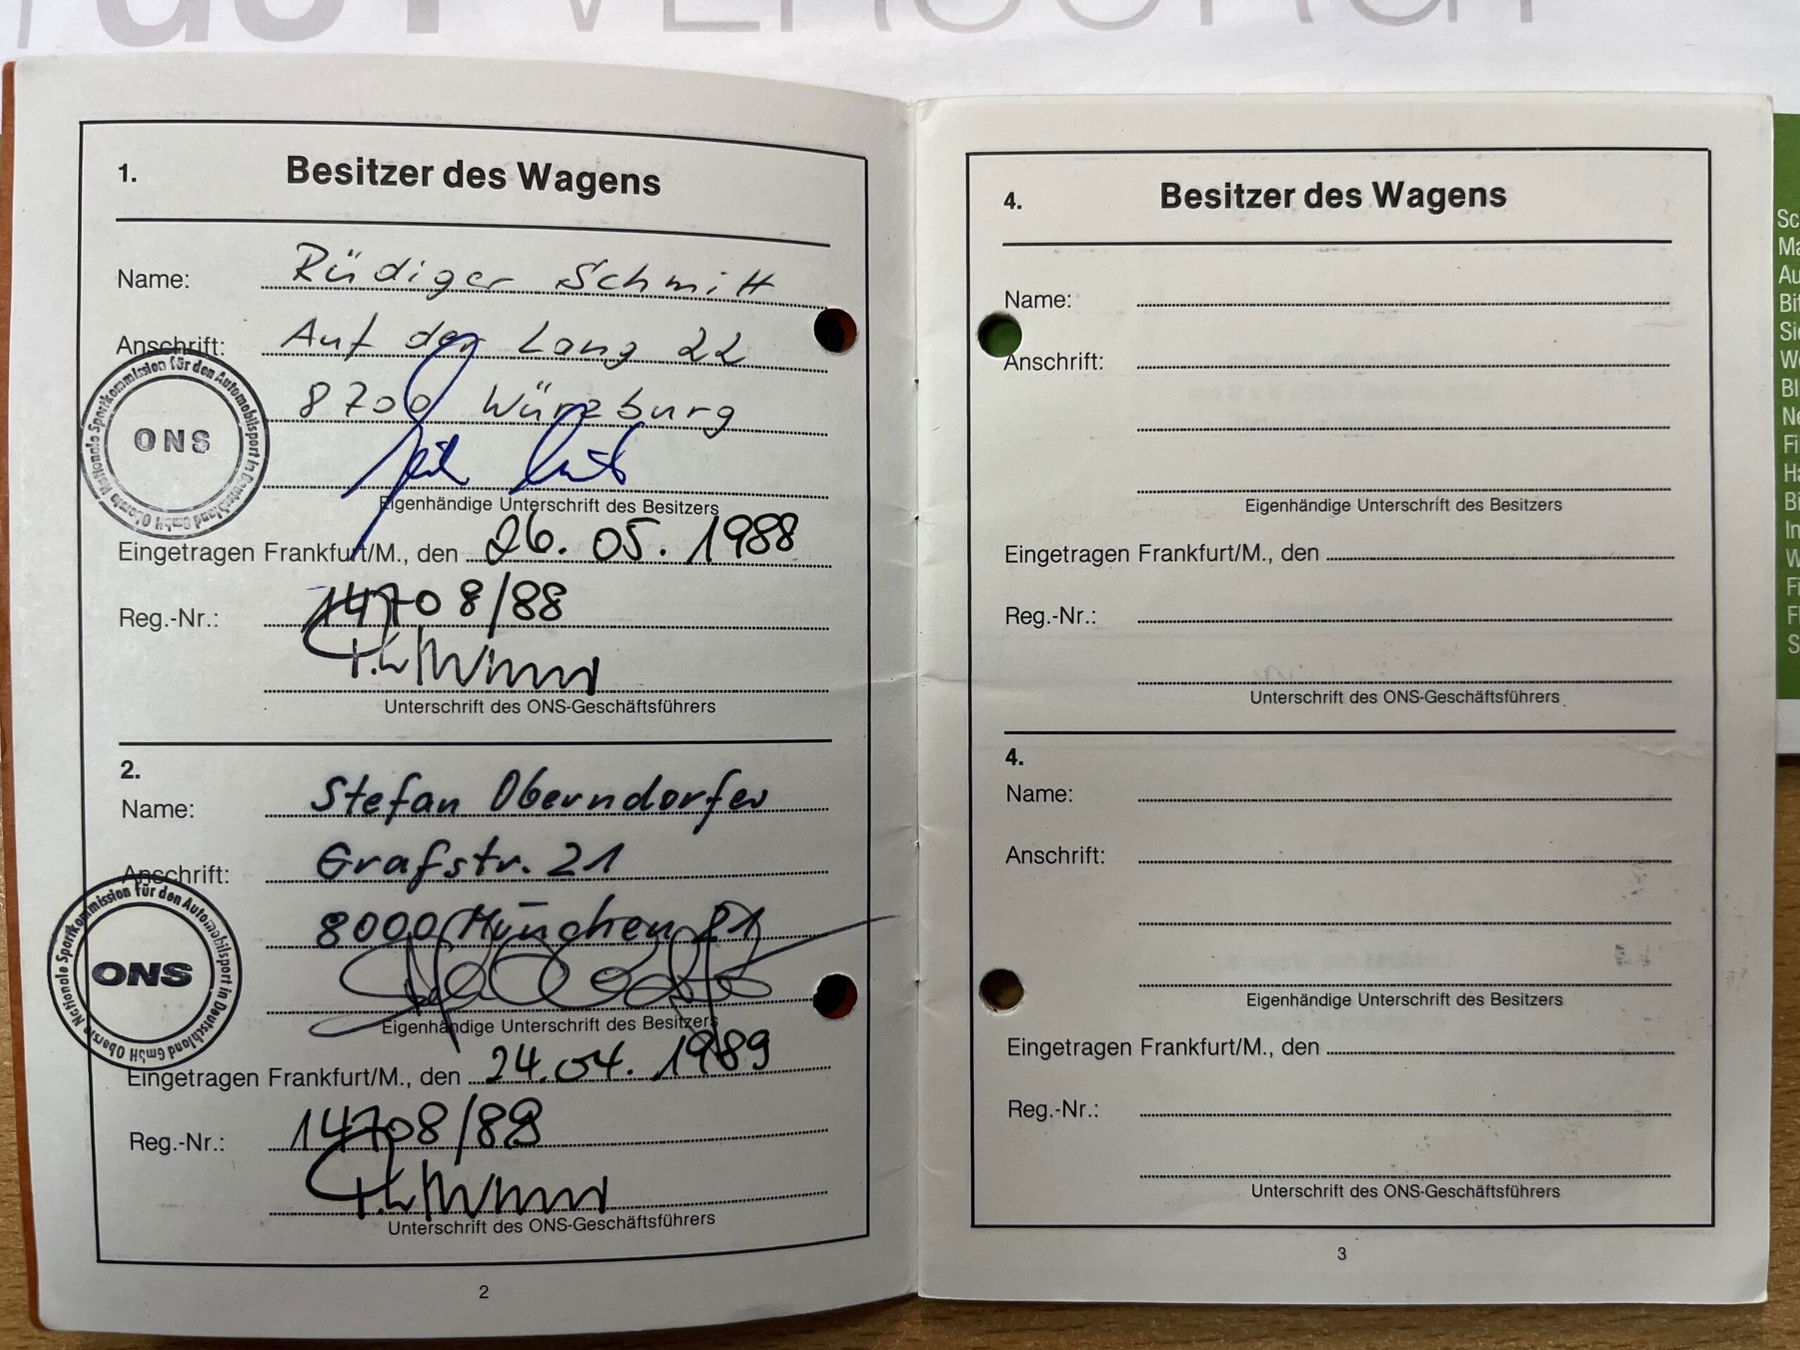 VERSORGT
1. Besitzer des Wagens
Name: Rüdiger Schmitt
Anschrift: Auf der Lang 22
8700 Würzburg
Eigenhändige Unterschrift des Besitzers
Eingetragen Frankfurt/M., den 26. 05. 1988
Reg.-Nr.: 14708/88
Unterschrift des ONS-Geschäftsführers
Oberste Nationale Sportkommission für den Automobilsport in Deutschland GmbH
ONS
2.
Name: Stefan Oberndorfer
Anschrift: Grafstr. 21
8000 München
Eigenhändige Unterschrift des Besitzers
Eingetragen Frankfurt/M., den 24.04. 1989
Reg.-Nr.: 14708/89
Unterschrift des ONS-Geschäftsführers
Oberste Nationale Sportkommission für den Automobilsport in Deutschland GmbH
ONS
2
4. Besitzer des Wagens
Name:
Anschrift:
Eigenhändige Unterschrift des Besitzers
Eingetragen Frankfurt/M., den
Reg.-Nr.:
Unterschrift des ONS-Geschäftsführers
4.
Name:
Anschrift:
Eigenhändige Unterschrift des Besitzers
Eingetragen Frankfurt/M., den
Reg.-Nr.:
Unterschrift des ONS-Geschäftsführers
3